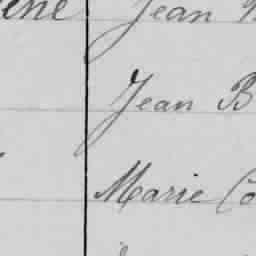 Jean
Jean B
Marie Co